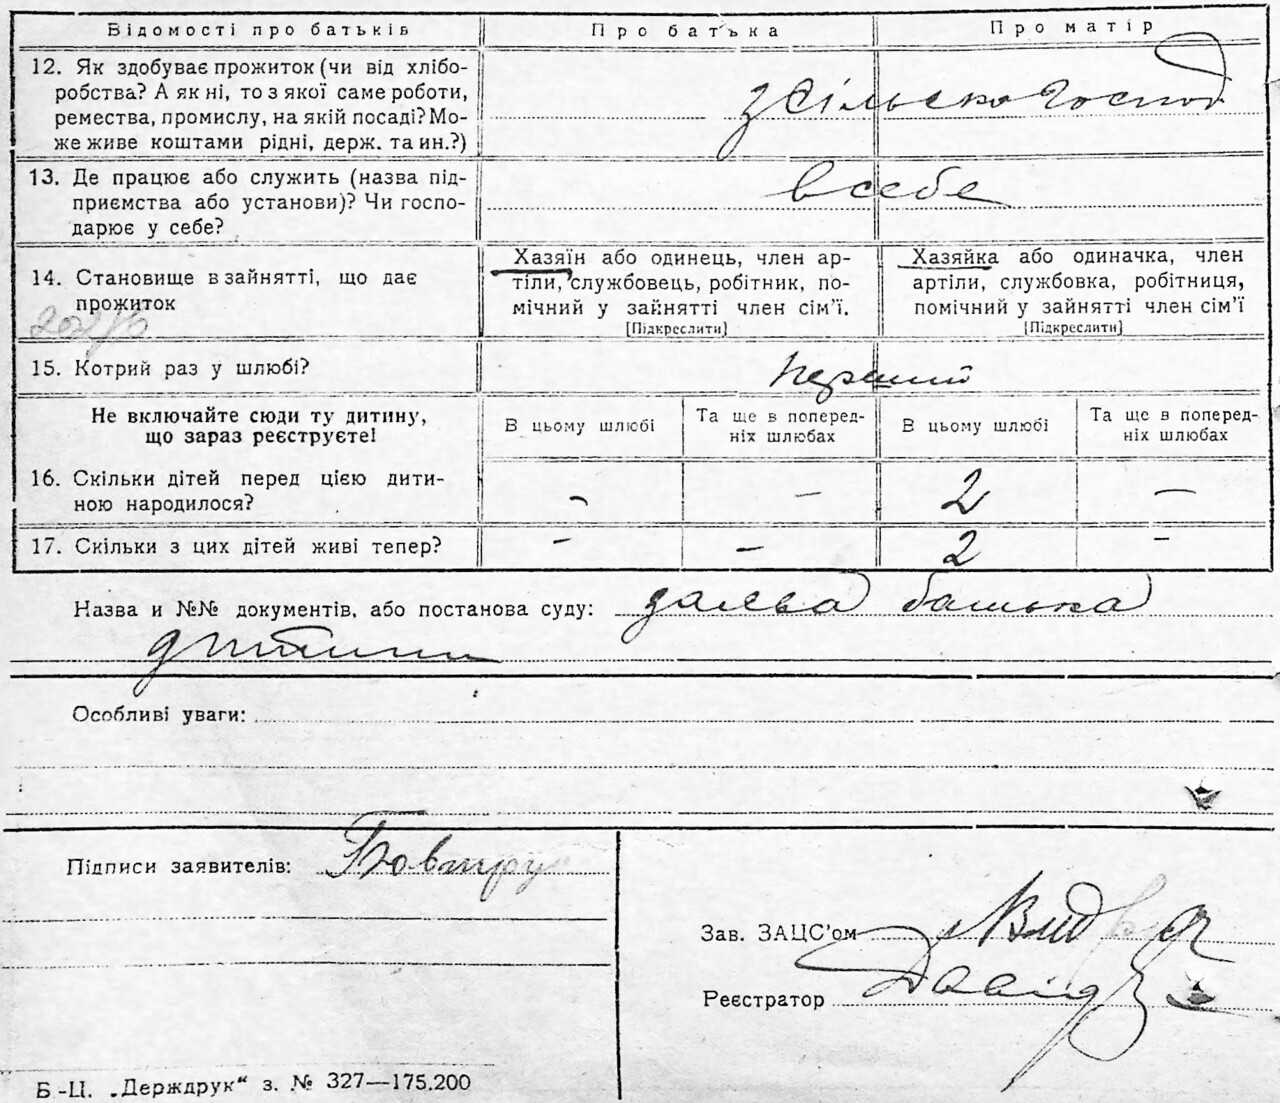 Відомості про батьків Про батька Про матір
12. Як здобуває прожиток (чи від хлібо-
робства? А як ні, то з якої саме роботи,
ремества, промислу, на якій посаді? Мо-
же живе коштами рідні, держ. та ин.?)
з сільського господ
13. Де працює або служить (назва під-
приємства або установи)? Чи госпо-
дарює у себе?
в себе
14. Становище в зайнятті, що дає
прожиток
Хазяїн або одинець, член ар-
тіли, службовець, робітник, по-
мічний у зайнятті член сім'ї.
[Підкреслити]
Хазяйка або одиначка, член
артіли, службовка, робітниця,
помічний у зайнятті член сім'ї
[Підкреслити]
15. Котрий раз у шлюбі?
перший
Не включайте сюди ту дитину,
що зараз реєструєте!
В цьому шлюбі
Та ще в поперед-
ніх шлюбах
В цьому шлюбі
Та ще в поперед-
ніх шлюбах
16. Скільки дітей перед цією дити-
ною народилося?
- - 2 -
17. Скільки з цих дітей живі тепер?
- - 2 -
Назва и №№ документів, або постанова суду: заява батька
дитини
Особливі уваги:
Підписи заявителів:
Зав. ЗАЦС'ом
Реєстратор
Б-Ц. „Держдрук“ з. № 327—175.200